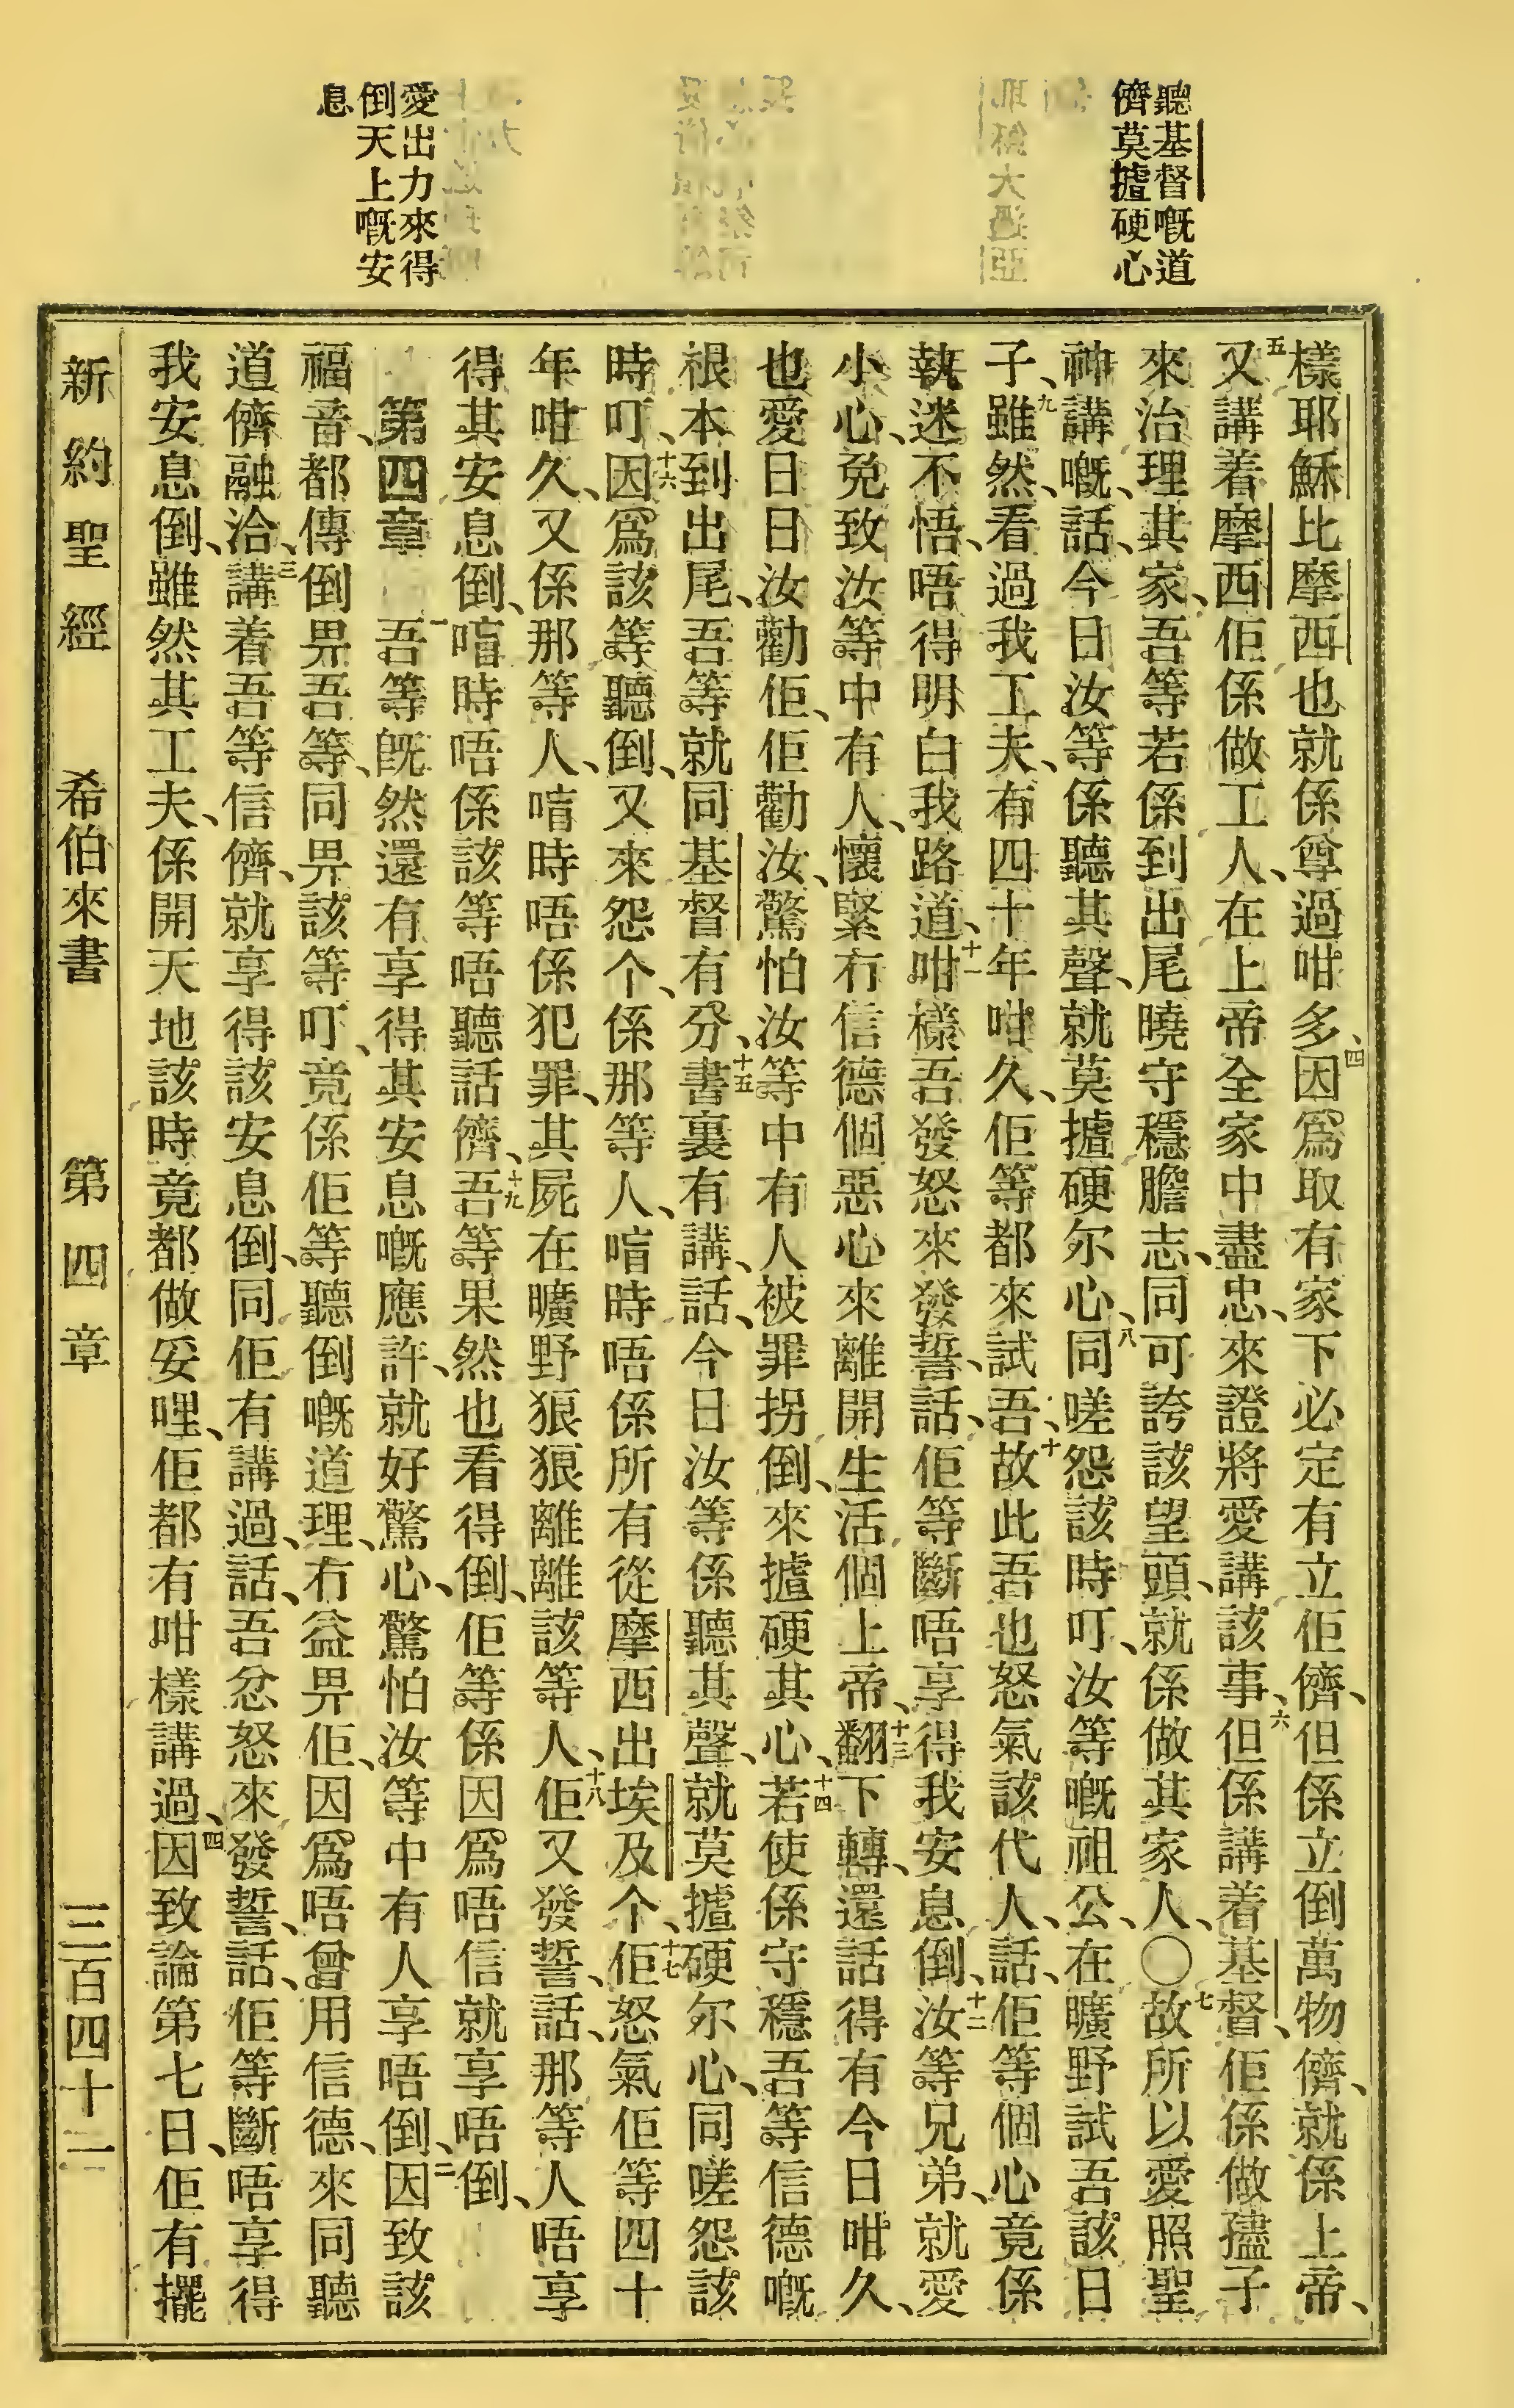 聽基督嘅道
儕莫摣硬心
愛出力來得
倒天上嘅安
息
樣耶穌比摩西也就係尊過咁多、四因爲取有家下必定有立佢儕、但係立倒萬物儕、就係上帝、
五又講着摩西佢係做工人、在上帝全家中盡忠、來證將愛講該事、六但係講着基督、佢係做孻子
來治理其家、吾等若係到出尾曉守穩膽志、同可誇該望頭、就係做其家人、〇七故所以愛照聖
神講嘅、話、今日汝等係聽其聲、就莫摣硬尔心、八同嗟怨該時叮、汝等嘅祖公、在曠野試吾該日
子、九雖然、看過我工夫、有四十年咁久、佢等都來試吾、十故此吾也怒氣該代人、話、佢等個心竟係
執迷不悟、唔得明白我路道、十一咁樣吾發怒來發誓、話、佢等斷唔享得我安息倒、十二汝等兄弟、就愛
小心、免致汝等中有人、懷緊冇信德個惡心來離開生活個上帝、十三翻下轉、還話得有今日咁久、
也愛日日汝勸佢、佢勸汝、驚怕汝等中有人被罪拐倒、來摣硬其心、十四若使係守穩吾等信德嘅
根本到出尾、吾等就同基督有分、十五書裏有講、話、今日汝等係聽其聲、就莫摣硬尔心、同嗟怨該
時叮、十六因爲該等聽倒、又來怨个、係那等人、唷時唔係所有從摩西出埃及个、十七佢怒氣佢等四十
年咁久、又係那等人、唷時唔係犯罪、其屍在曠野狼狼離離該等人、十八佢又發誓、話、那等人唔享
得其安息倒、唷時唔係該等唔聽話儕、十九吾等果然也看得倒、佢等係因爲唔信就享唔倒、
第四章　一吾等旣然還有享得其安息嘅應許、就好驚心、驚怕汝等中有人享唔倒、二因致該
福音、都傳倒畀吾等、同畀該等叮、竟係佢等聽倒嘅道理、冇益畀佢、因爲唔曾用信德、來同聽
道儕融洽、三講着吾等信儕、就享得該安息倒、同佢有講過、話、吾忿怒來發誓、話、佢等斷唔享得
我安息倒、雖然其工夫、係開天地該時竟都做妥哩、佢都有咁樣講過、四因致論第七日、佢有擺
新約聖經　希伯來書　第四章　三百四十二